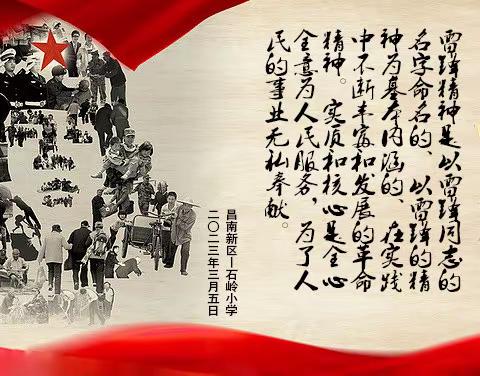 雷锋精神是以雷锋同志的
名字命名的、以雷锋的精
神为基本内涵的、在实践
中不断丰富和发展的革命
精神。实质和核心是全心
全意为人民服务，为了人
民的事业无私奉献。
昌南新区—石岭小学
二〇二三年三月五日